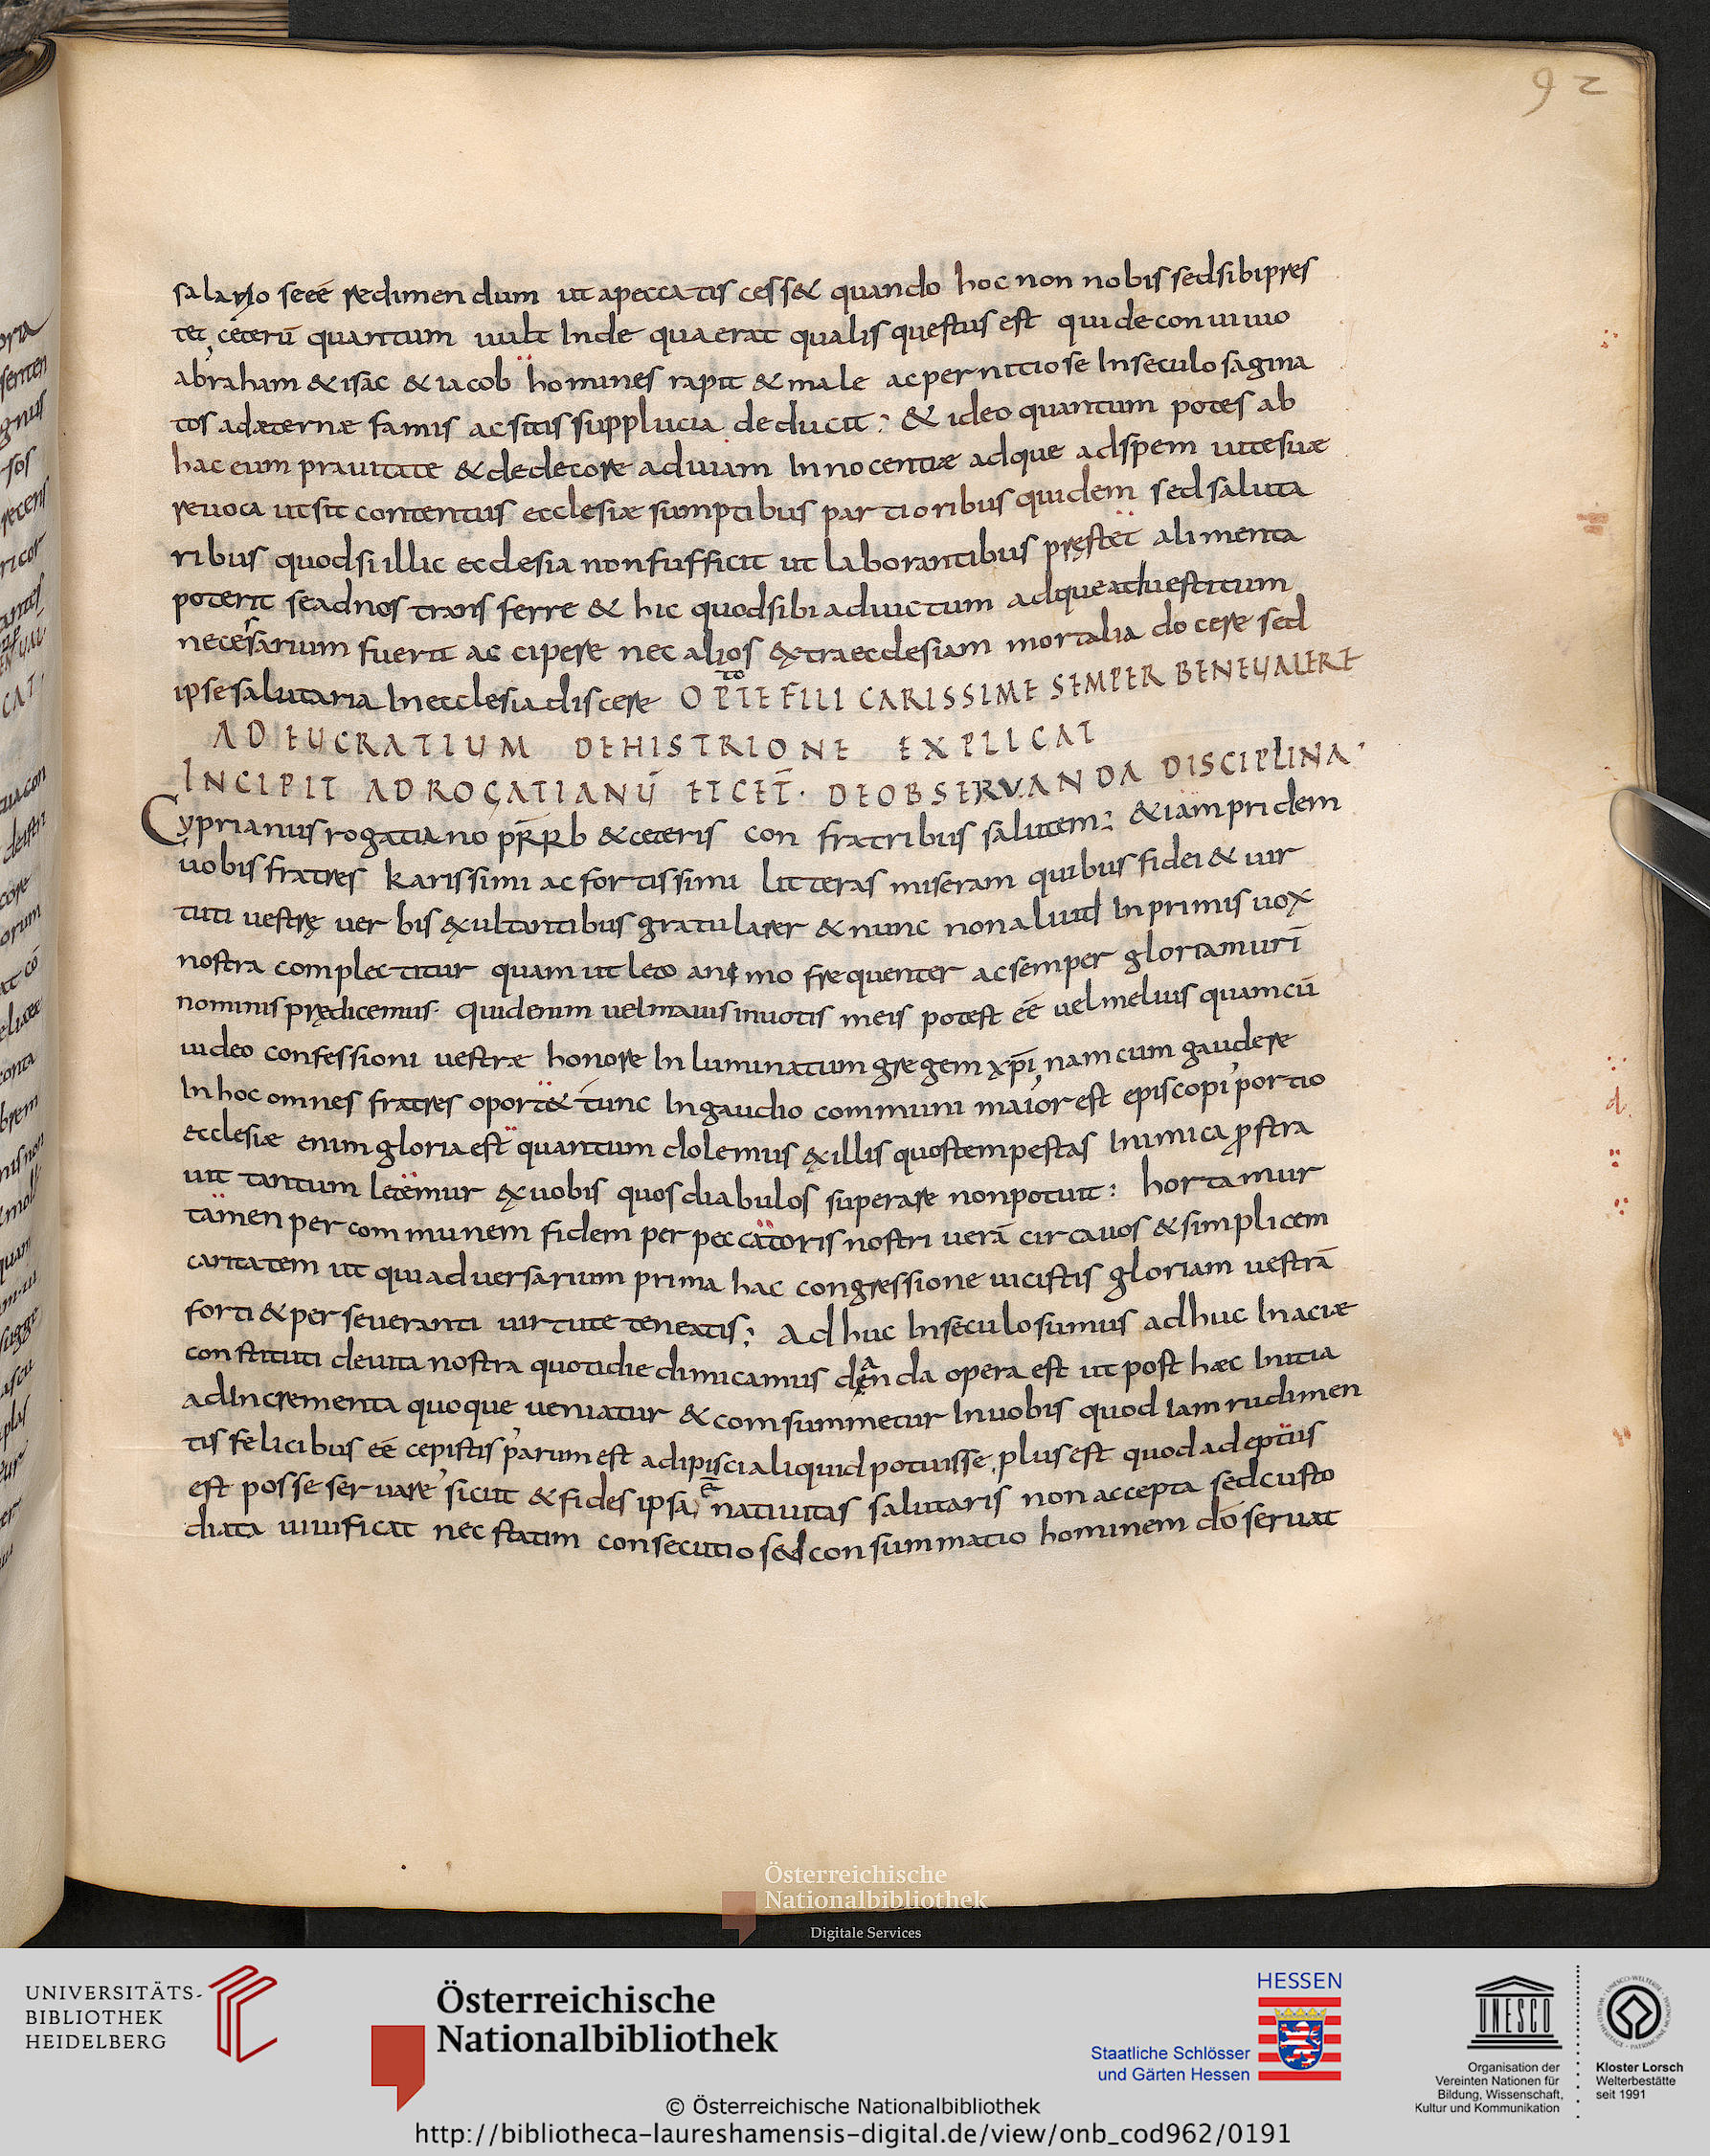 92
salario seeé redimendum ut apeccatis cess& quando hoc non nobis sedsibi pres
tet, ceterū quantum uult Inde quaerat qualis questus est qui de conuiuio
abraham & isac & iacob homines rapit & male ac pernitiose Inseculo sagina
tos ad æternæ famis ac sitis supplucia deducit; & ideo quantum potes ab
hac eum prauitate & dedecore ad uiam Innocentiæ adque adspem uitesuæ
reuoca ut sit contentus ecclesiæ sumptibus partioribus quidem sed saluta
ribus quodsi illic ecclesia non sufficit ut laborantibus pręstet alimenta
poterit se adnos transferre & hic quodsibi aduictum adque aduestitum
necessarium fuerit accipere nec alios extra ecclesiam mortalia docere sed
ipse salutaria In ecclesia discere OPTE FILI CARISSIME SEMPER BENEUALERE
to
AD EUCRATIUM DE HISTRIONE EXPLICAT
INCIPIT AD ROGATIANŪ ET CET̄· DE OBSERVANDA DISCIPLINA·
Cyprianus rogatiano pr̄ƀ & ceteris con fratribus salutem; & iam pridem
uobis fratres karissimi ac fortissimi litteras miseram quibus fidei & uir
tuti uestrę uerbis exultantibus gratularer & nunc non aliud Inprimis uox
nostra complectitur quam ut leto animo frequenter ac semper gloriam uri̅
nominis prędicemus· Quid enim uel maius inuotis meis potest eé uel melius quam cū
uideo confessioni uestræ honore In luminatum gregem xp̄i, nam cum gaudere
In hoc omnes fratres oport& tunc Ingaudio communi maior est episcopi portio
ecclesiæ enim gloria est quantum dolemus ex illis quos tempestas Inimica ꝓstra
uit tantum letemur ex uobis quos diabulos superare non potuit; hortamur
tamen per communem fidem per peccatoris nostri uerā circa uos & simplicem
caritatem ut qui aduersarium prima hac congressione uicistis gloriam uestrā
forti & perseueranti uirtute teneatis; Adhuc Inseculo sumus adhuc In aciæ
constituti deuita nostra quotidie dimicamus danda opera est ut post hæc Initia
ad Incrementa quoque ueniatur & comsummetur Inuobis quod Iam rudimen
tis felicibus eé cepistis parum est adipisci aliquid potuisse, plus est quod adeptus
est posse seruare sicut & fides ipsa, & natiuitas salutaris non accepta sed custo
diata uiuificat nec statim consecutio sed consummatio hominem dō seruat
Österreichische
Nationalbibliothek
Digitale Services
UNIVERSITÄTS-
BIBLIOTHEK
HEIDELBERG
Österreichische
Nationalbibliothek
HESSEN
Staatliche Schlösser
und Gärten Hessen
UNESCO
Organisation der
Vereinten Nationen für
Bildung, Wissenschaft,
Kultur und Kommunikation
Kloster Lorsch
Welterbestätte
seit 1991
© Österreichische Nationalbibliothek
http://bibliotheca-laureshamensis-digital.de/view/onb_cod962/0191